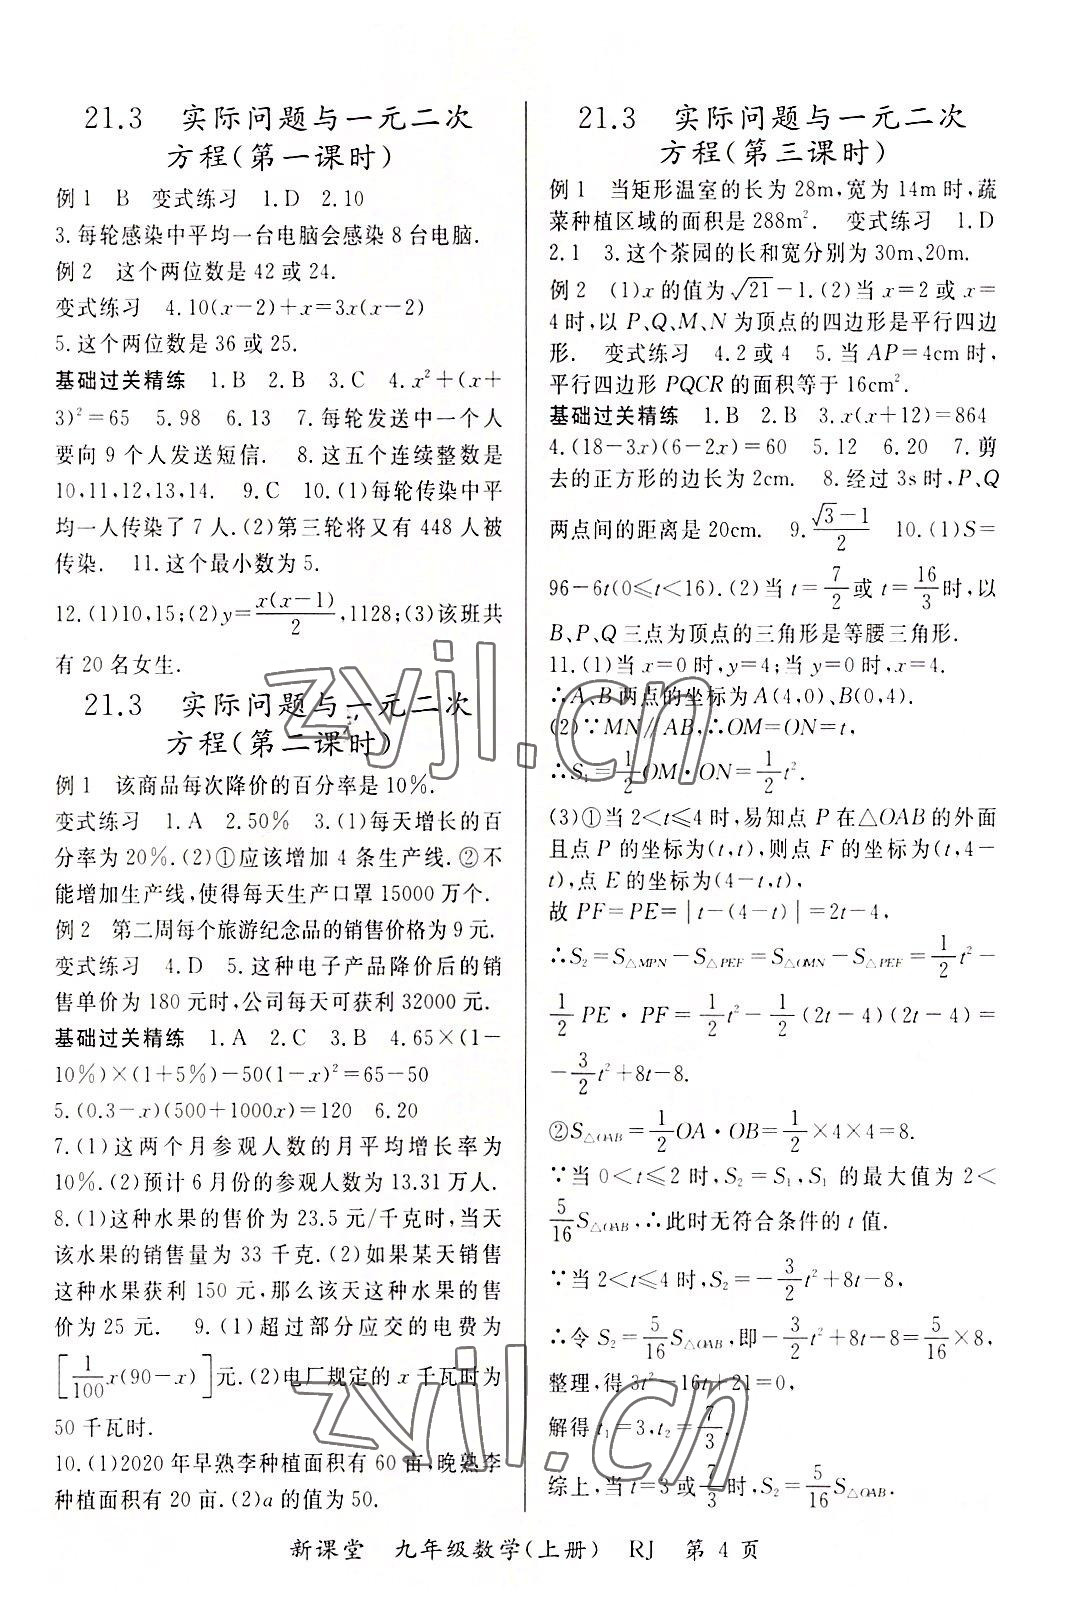 21.3 实际问题与一元二次
方程(第一课时)
例1 B 变式练习 1.D 2.10
3.每轮感染中平均一台电脑会感染8台电脑.
例2 这个两位数是42或24.
变式练习 4.10(x-2)+x=3x(x-2)
5.这个两位数是36或25.
基础过关精练 1.B 2.B 3.C 4.x²+(x+
3)²=65 5.98 6.13 7.每轮发送中一个人
要向9个人发送短信. 8.这五个连续整数是
10,11,12,13,14. 9.C 10.(1)每轮传染中平
均一人传染了7人.(2)第三轮将又有448人被
传染. 11.这个最小数为5.
12.(1)10,15;(2)y=x(x-1)/2,1128;(3)该班共
有20名女生.
21.3 实际问题与一元二次
方程(第二课时)
例1 该商品每次降价的百分率是10%.
变式练习 1.A 2.50% 3.(1)每天增长的百
分率为20%.(2)①应该增加4条生产线.②不
能增加生产线,使得每天生产口罩15000万个.
例2 第二周每个旅游纪念品的销售价格为9元.
变式练习 4.D 5.这种电子产品降价后的销
售单价为180元时,公司每天可获利32000元.
基础过关精练 1.A 2.C 3.B 4.65×(1-
10%)×(1+5%)-50(1-x)²=65-50
5.(0.3-x)(500+1000x)=120 6.20
7.(1)这两个月参观人数的月平均增长率为
10%.(2)预计6月份的参观人数为13.31万人.
8.(1)这种水果的售价为23.5元/千克时,当天
该水果的销售量为33千克.(2)如果某天销售
这种水果获利150元,那么该天这种水果的售
价为25元. 9.(1)超过部分应交的电费为
[1/100 x(90-x)]元.(2)电厂规定的x千瓦时为
50千瓦时.
10.(1)2020年早熟李种植面积有60亩,晚熟李
种植面积有20亩.(2)a的值为50.
21.3 实际问题与一元二次
方程(第三课时)
例1 当矩形温室的长为28m,宽为14m时,蔬
菜种植区域的面积是288m². 变式练习 1.D
2.1 3.这个茶园的长和宽分别为30m、20m.
例2 (1)x的值为√21-1.(2)当x=2或x=
4时,以P、Q、M、N为顶点的四边形是平行四边
形. 变式练习 4.2或4 5.当AP=4cm时,
平行四边形PQCR的面积等于16cm².
基础过关精练 1.B 2.B 3.x(x+12)=864
4.(18-3x)(6-2x)=60 5.12 6.20 7.剪
去的正方形的边长为2cm. 8.经过3s时,P、Q
两点间的距离是20cm. 9.(√3-1)/2 10.(1)S=
96-6t(0≤t<16).(2)当t=7/2或t=16/3时,以
B、P、Q三点为顶点的三角形是等腰三角形.
11.(1)当x=0时,y=4;当y=0时,x=4.
∴A、B两点的坐标为A(4,0)、B(0,4).
(2)∵MN∥AB,∴OM=ON=t,
∴S₁=1/2 OM·ON=1/2 t².
(3)①当2<t≤4时,易知点P在△OAB的外面
且点P的坐标为(t,t),则点F的坐标为(t,4-
t),点E的坐标为(4-t,t),
故PF=PE=|t-(4-t)|=2t-4,
∴S₂=S△MPN-S△PEF=S△OMN-S△PEF=1/2 t²-
1/2 PE·PF=1/2 t²-1/2(2t-4)(2t-4)=
-3/2 t²+8t-8.
②S△OAB=1/2 OA·OB=1/2×4×4=8.
∵当0<t≤2时,S₂=S₁,S₁的最大值为2<
5/16 S△OAB,∴此时无符合条件的t值.
∵当2<t≤4时,S₂=-3/2 t²+8t-8,
∴令S₂=5/16 S△OAB,即-3/2 t²+8t-8=5/16×8,
整理,得3t²-16t+21=0,
解得t₁=3,t₂=7/3.
综上,当t=3或7/3时,S₂=5/16 S△OAB.
新课堂 九年级数学(上册) RJ 第4页
zyjl.cn
zyjl.cn